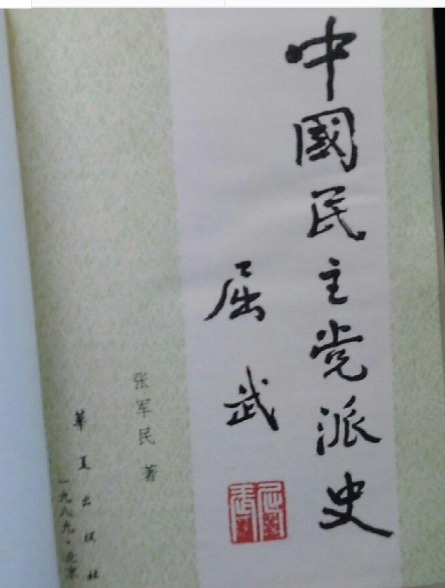 中國民主党派史
屈武
屈武
张军民 著
華夏出版社
一九八九·北京